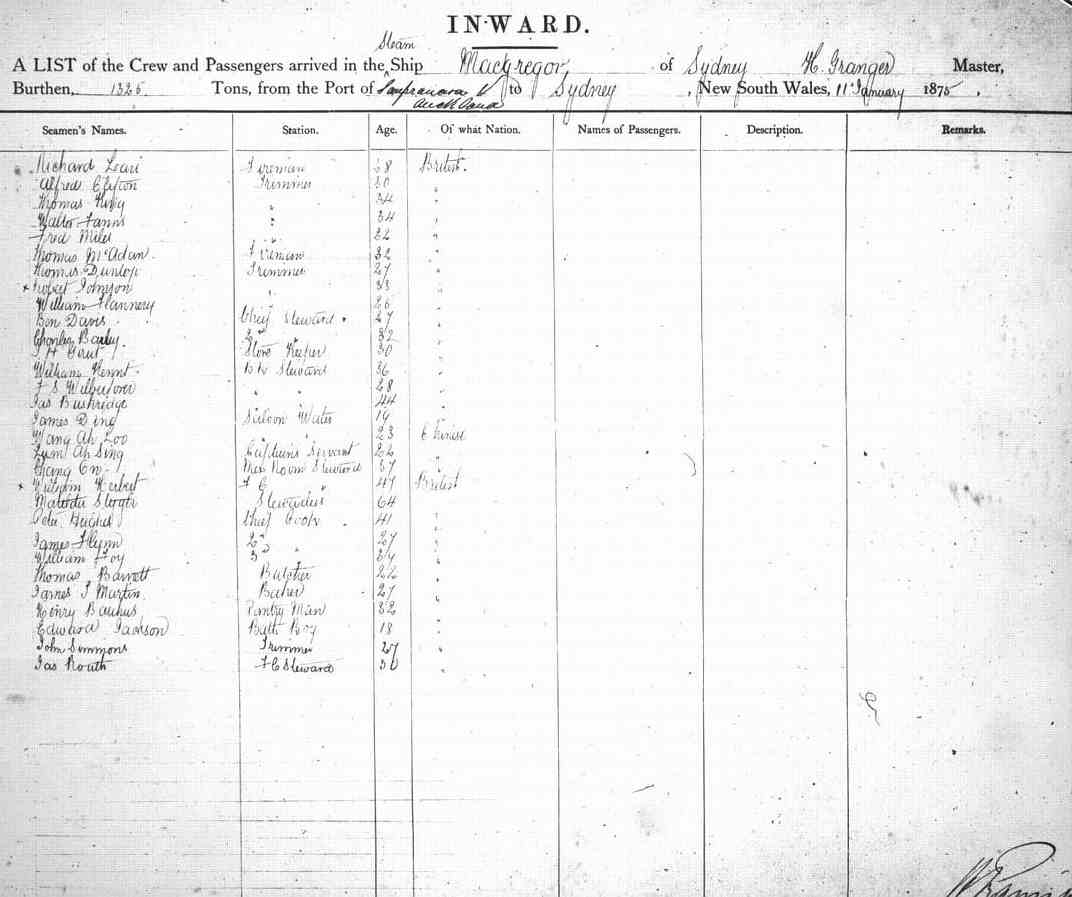 INWARD.
Steam
A LIST of the Crew and Passengers arrived in the Ship Macgregor, of Sydney H. Granger Master,
Burthen, 1325 Tons, from the Port of Sanfrancisco & to Sydney, New South Wales, 11 January 1875.
Auckland
Seamen's Names. Station. Age. Of what Nation. Names of Passengers. Description. Remarks.
Richard Fireman 28 British.
Alfred Clifton Trimmer 30 "
Thomas King " 34 "
Walter " 34 "
Fred Miles " 22 "
Thomas McAdam. Fireman 32 "
Thomas Dunlop Trimmer 27 "
x Robert Johnson " 33 "
William Flannery " 26 "
Ben Davis. Chief Steward. 27 "
Charles 2 " 32 "
Store Keeper 30 "
William Bk Steward 36 "
F S Wilberforce 28
Jas Bushridge " " 44 "
James Saloon Waiter 19 "
Wang Ah Loo " " 23 Chinese
Ah Sing Captains Servant 22
Chang Mess Room Steward 37 "
x William Herbert F C 47 British
Matilda Stewardess 64
Peter Hughes Chief Cook 41 "
James Flynn 2 " 27 "
William Foy 3 " 24 "
Thomas Barrett Butcher 22 "
James J Martin. Baker 27 "
Henry Pantry Man 32 "
Edward Jackson Bath Boy 18 "
John Simmons Trimmer 27 "
Jas Routh F C Steward 36 "